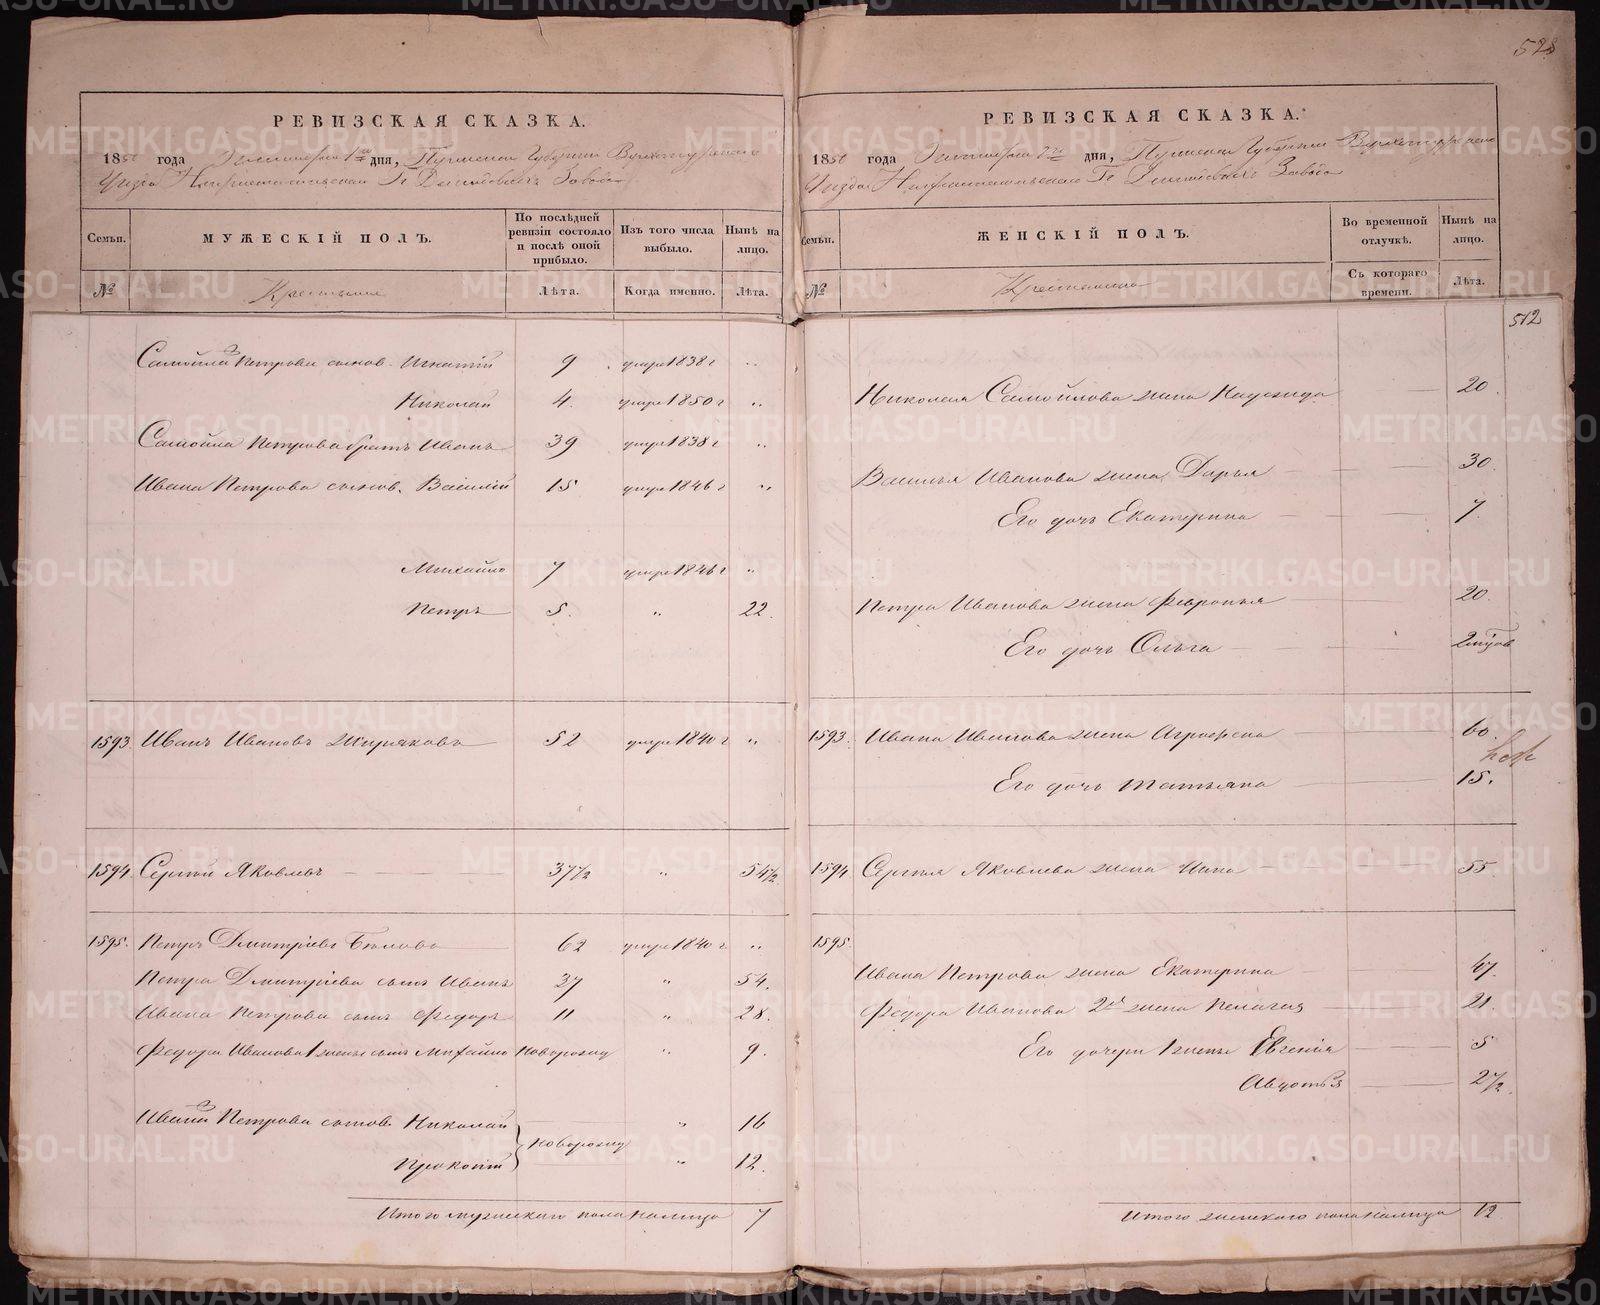 528
РЕВИЗСКАЯ СКАЗКА.
1850 года Сентября 1го дня, Пермской Губернии Верхотурского
Уезда Нижнетагильского Гг Демидовых Завода
Семьи. МУЖЕСКІЙ ПОЛЪ. По послѣдней ревизіи состояло и послѣ оной прибыло. Изъ того числа выбыло. Нынѣ на лицо.
№ Крестьяне Лѣта. Когда именно. Лѣта.
Самойлы Петрова сынов. Игнатій 9 умре 1838 г "
Николай 4. умре 1850 г "
Самойла Петрова братъ Иванъ 39 умре 1838 г "
Ивана Петрова сынов. Василій 15 умре 1846 г "
Михайло 7 умре 1846 г "
Петръ 5. " 22.
1593 Иванъ Ивановъ 52 умре 1840 г "
1594 Сергѣй Яковлевъ 37 1/2 " 54 1/2
1595. Петръ Дмитріевъ 62 умре 1840 г "
Петра Дмитріева сынъ Иванъ 37 " 54.
Ивана Петрова сынъ Федоръ 11 " 28.
Федора Иванова 1 жены сынъ Михайло новорожд " 9.
Ивана Петрова сынов. Николай новорожд " 16
Прокопій " 12.
Итого мужескаго пола налицо 7
РЕВИЗСКАЯ СКАЗКА.
1850 года Сентября дня, Пермской Губернии Верхотурского
Уезда Нижнетагильского Гг Демидовых Завода
Семьи. ЖЕНСКІЙ ПОЛЪ. Во временной отлучкѣ. Нынѣ на лицо.
№ Крестьянки Съ котораго времени. Лѣта.
512
Николая Самойлова жена Надежда 20.
Василья Иванова жена Дарья 30.
Его дочь Екатерина 7
Петра Иванова жена Февронья 20.
Его дочь Ольга
1593. Ивана Иванова жена Агрофена 60.
Его дочь Татьяна 15.
1594 Сергѣя Яковлева жена Анна 55.
1595.
Ивана Петрова жена Екатерина 47.
Федора Иванова 2я жена Пелагея 21.
Его дочери 1 жены Евгенія 5
Авдотья 2 1/2
Итого женскаго пола налицо 12
METRIKI.GASO-URAL.RU